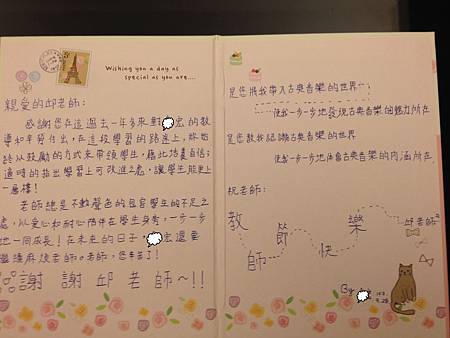 Wishing you a day as
special as you are....
親愛的邱老師：
感謝您在這過去一年多來對宏的教
導和辛勞付出，在這段學習的路途上，妳始
終以鼓勵的方式來帶領學生，藉此培養自信；
適時的指出學習上可改進之處，讓學生能更上
一層樓！
老師總是不動聲色的包容學生的不足之
處，以愛心和耐心陪伴在學生身旁，一步一步
地一同成長！在未來的日子，宏還要
繼續麻煩老師。老師，您辛苦了！
謝謝邱老師～!!
是您將我帶入古典音樂的世界
使我一步一步地發現古典音樂的魅力所在
是您教我認識古典音樂的世界
使我一步一步地体會古典音樂的內涵所在
祝老師：
教師節快樂
邱老師
By
103.
9.28